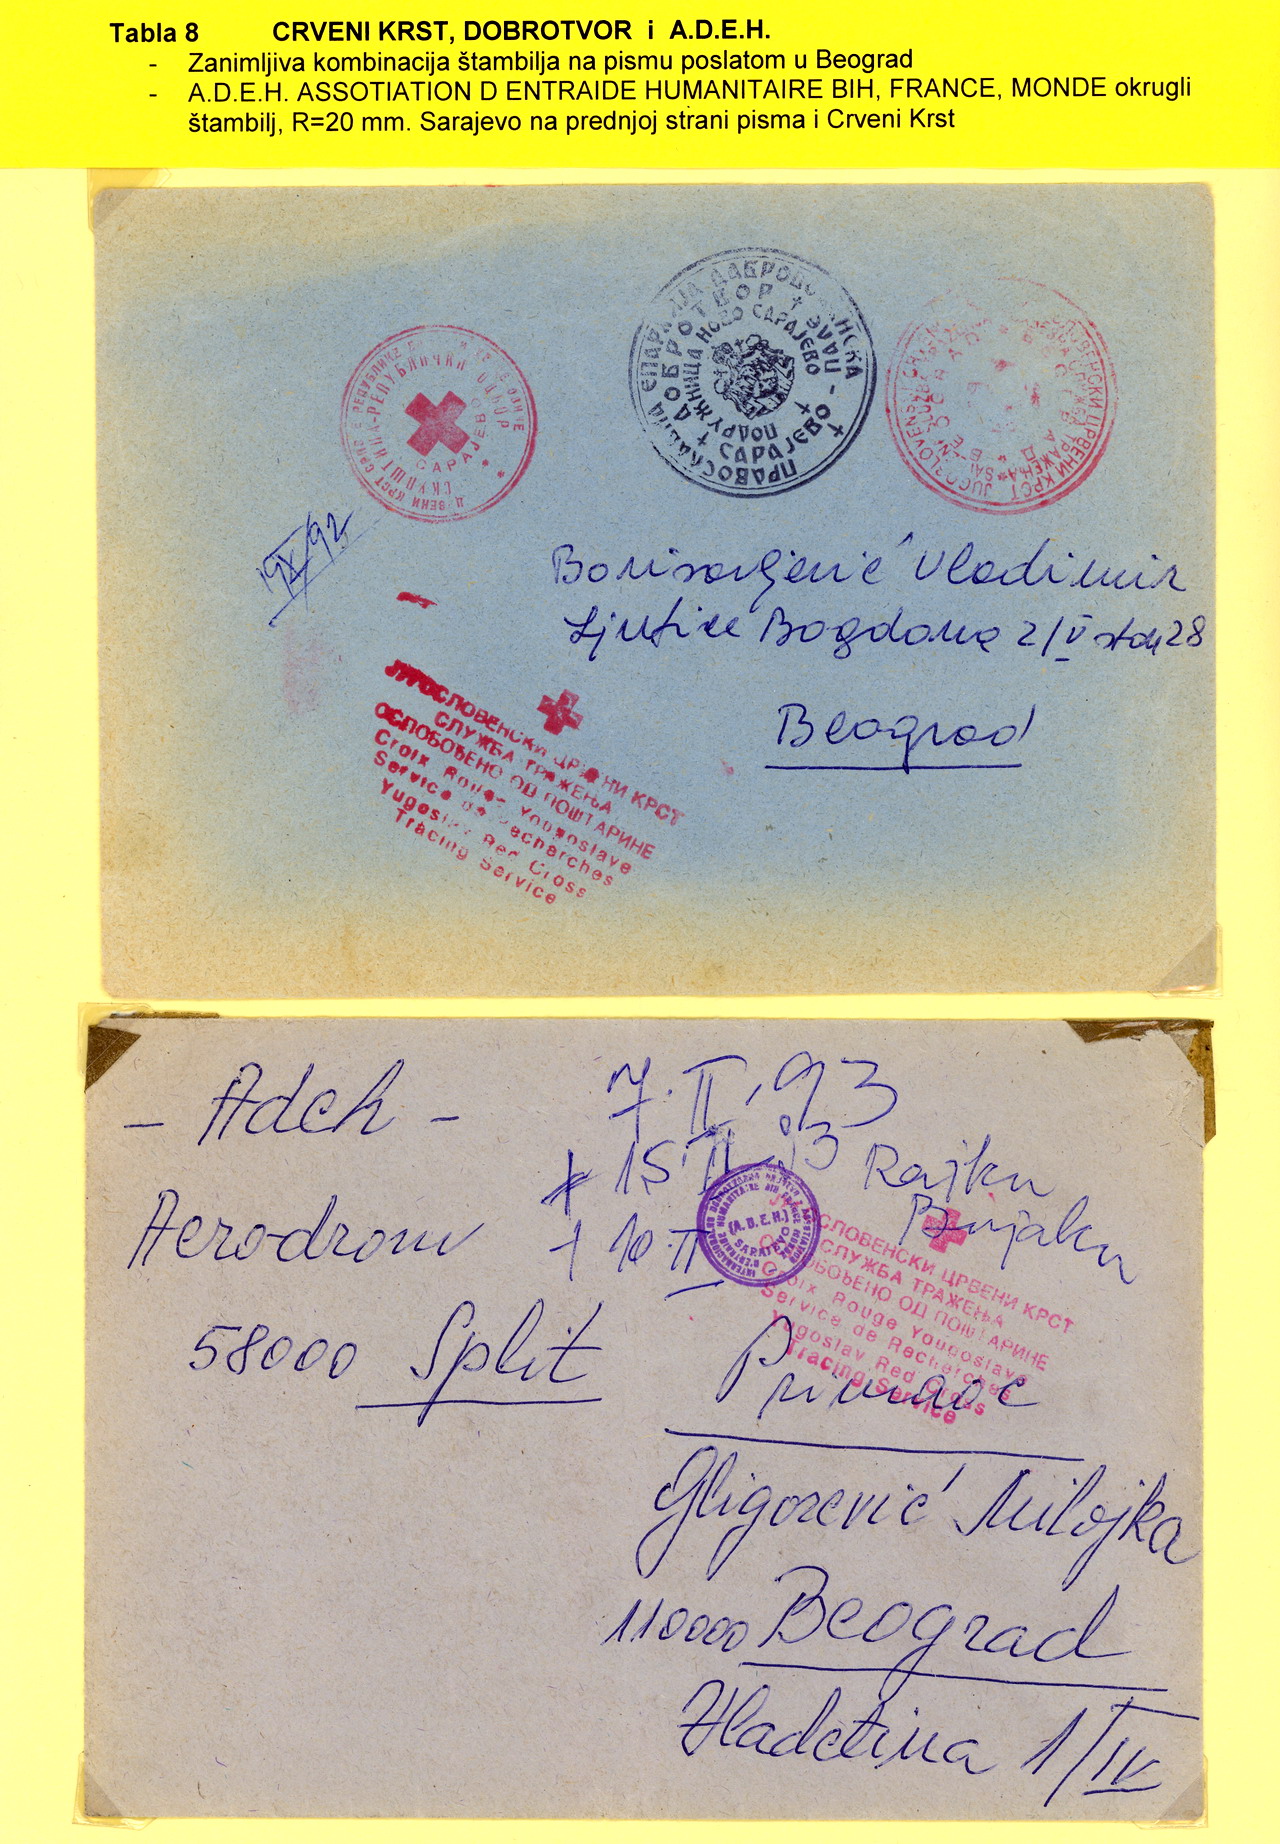 Tabla 8 CRVENI KRST, DOBROTVOR i A.D.E.H.
- Zanimljiva kombinacija štambilja na pismu poslatom u Beograd
- A.D.E.H. ASSOTIATION D ENTRAIDE HUMANITAIRE BIH, FRANCE, MONDE okrugli
štambilj, R=20 mm. Sarajevo na prednjoj strani pisma i Crveni Krst
СКУПШТИНА-РЕПУБЛИЧКИ ОДБОР
САРАЈЕВО
ПРАВОСЛАВНА ЕПАРХИЈА ДАБРОБОСАНСКА
САРАЈЕВО
ДОБРОТВОР
ПАЛЕ
ПОДРУЖНИЦА НОВО САРАЈЕВО
ЦРВЕНИ КРСТ
19/X/92
Borisavljević Vladimir
Ljutice Bogdana 2/V stan 28
Beograd
ЈУГОСЛОВЕНСКИ ЦРВЕНИ КРСТ
СЛУЖБА ТРАЖЕЊА
ОСЛОБОЂЕНО ОД ПОШТАРИНЕ
Croix Rouge Yougoslave
Service de Recherches
Yugoslav Red Cross
Tracing Service
- Adeh -
7.II.93
15 II 93 Rajku
Aerodrom
10.II
(A.D.E.H.)
SARAJEVO
58000 Split
СЛОВЕНСКИ ЦРВЕНИ КРСТ
СЛУЖБА ТРАЖЕЊА
ОБОЂЕНО ОД ПОШТАРИНЕ
Croix Rouge Yougoslave
Service de Recherches
Yugoslav Red Cross
Tracing Service
Primaoc
Gligorević Milojka
110000 Beograd
Hadetina 1/IV